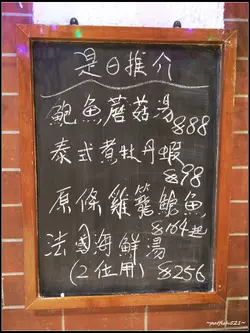 是日推介
鮑魚蘑菇湯
$88
泰式煮牡丹蝦
$98
原條雞籠鯧魚
$164起
法國海鮮湯
(2位用) $256